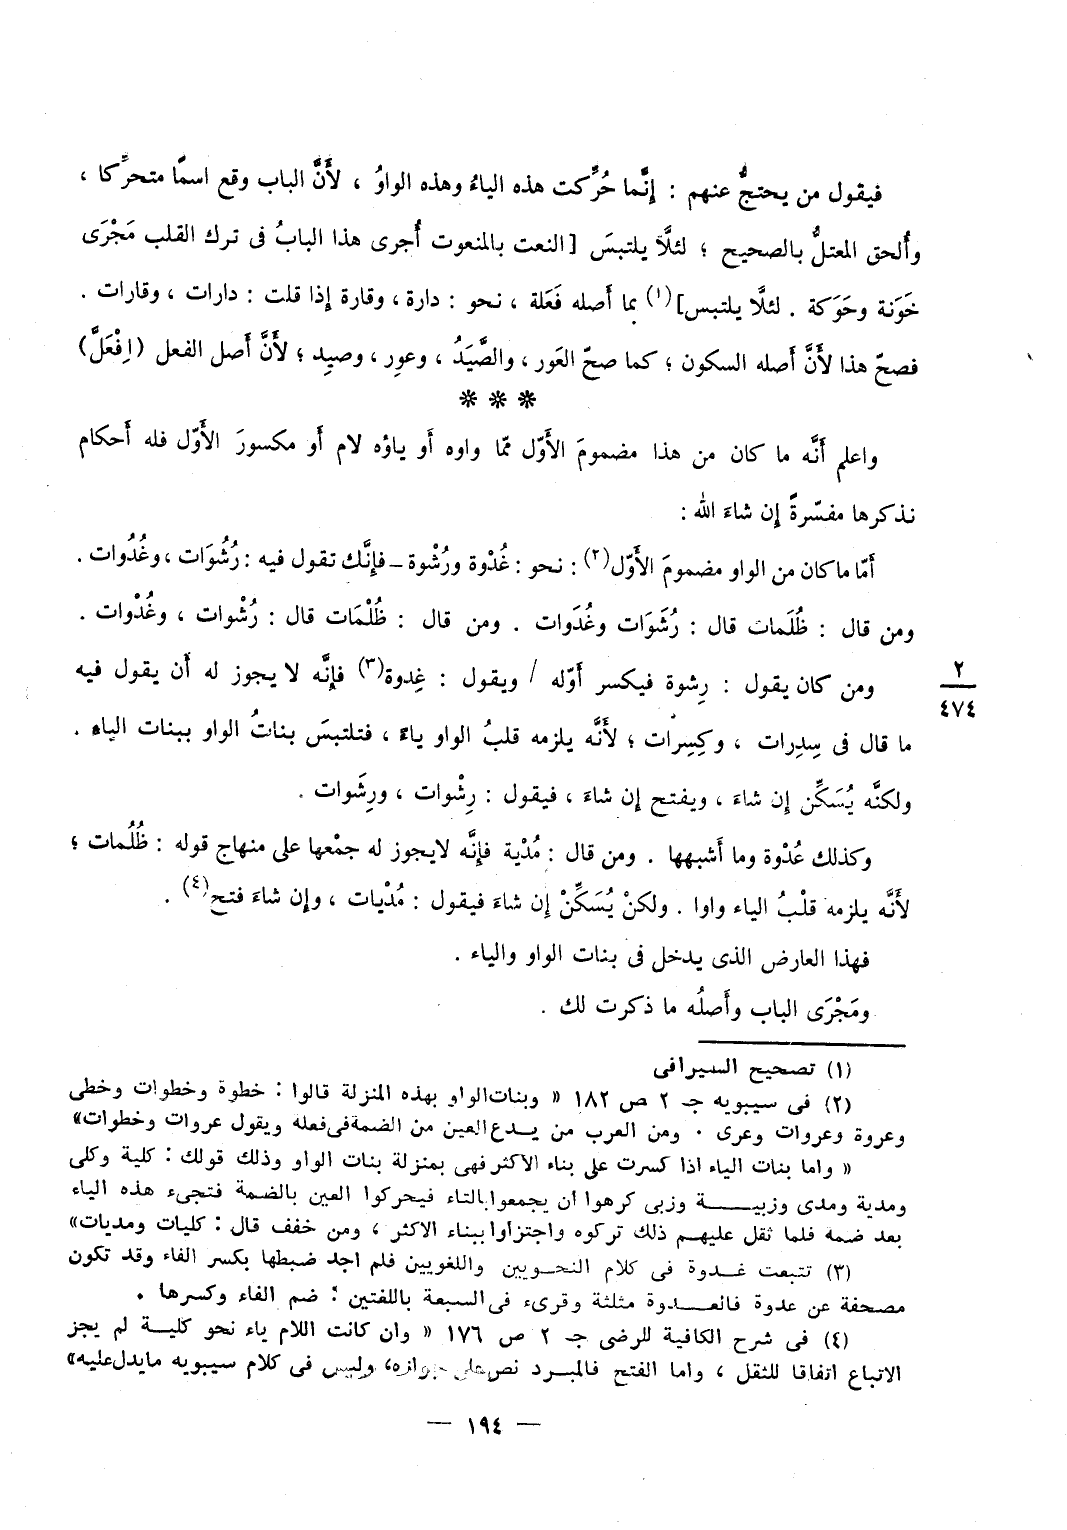 فيقول من يحتجُّ عنهم : إنَّما حُرِّكت هذه الياءُ وهذه الواوُ ، لأَنَّ الباب وقع اسمًا متحرِّكا ،
وأُلحق المعتلُّ بالصحيح ؛ لئلَّا يلتبسَ [النعت بالمنعوت أُجرى هذا البابُ فى ترك القلب مَجْرَى
خَوَنة وحَوَكة . لئلَّا يلتبس](١) بما أَصله فَعَلة ، نحو : دارة ، وقارة إذا قلت : دارات ، وقارات .
فصحّ هذا لأَنَّ أَصله السكون ؛ كما صحّ العَور ، والصَّيَدُ ، وعوِر ، وصيِد ؛ لأَنَّ أَصل الفعل (اِفْعَلَّ)
* * *
واعلم أَنَّه ما كان من هذا مضمومَ الأَوّل ممّا واوه أَو ياؤه لام أَو مكسورَ الأَوّل فله أَحكام
نذكرها مفسّرةً إن شاءَ الله :
أَمّا ما كان من الواو مضمومَ الأَوّل(٢) : نحو : غُدْوة ورُشْوة – فإنَّك تقول فيه : رُشُوَات ، وغُدُوات .
ومن قال : ظُلَمات قال : رُشَوَات وغُدَوات . ومن قال : ظُلْمَات قال : رُشْوات ، وغُدْوات .
ومن كان يقول : رِشوة فيكسر أَوّله / ويقول : غِدوة(٣) فإنَّه لا يجوز له أَن يقول فيه
٢
٤٧٤
ما قال فى سِدِرات ، وكِسِرات ؛ لأَنَّه يلزمه قلبُ الواو ياءً ، فتلتبسَ بناتُ الواو ببنات الياءِ .
ولكنَّه يُسَكِّن إن شاءَ ، ويفتح إن شاءَ ، فيقول : رِشْوات ، ورِشَوات .
وكذلك عُدْوة وما أَشبهها . ومن قال : مُدْية فإنَّه لايجوز له جمْعها على منهاج قوله : ظُلُمات ؛
لأَنَّه يلزمه قلْبُ الياء واوا . ولكنْ يُسَكِّنْ إن شاءَ فيقول : مُدْيات ، وإن شاءَ فتح(٤) .
فهذا العارض الذى يدخل فى بنات الواو والياء .
ومَجْرَى الباب وأَصلُه ما ذكرت لك .
(١) تصحيح السيرافى
(٢) فى سيبويه جـ ٢ ص ١٨٢ « وبنات الواو بهذه المنزلة قالوا : خطوة وخطوات وخطى
وعروة وعروات وعرى . ومن العرب من يدع العين من الضمة فى فعله ويقول عروات وخطوات»
« واما بنات الياء اذا كسرت على بناء الاكثر فهى بمنزلة بنات الواو وذلك قولك : كلية وكلى
ومدية ومدى وزبيــــة وزبى كرهوا ان يجمعوا بالتاء فيحركوا العين بالضمة فتجىء هذه الياء
بعد ضمه فلما ثقل عليهم ذلك تركوه واجتزاوا ببناء الاكثر ، ومن خفف قال : كليات ومديات»
(٣) تتبعت غـدوة فى كلام النحـويين واللغويين فلم اجد ضبطها بكسر الفاء وقد تكون
مصحفة عن عدوة فالعـدوة مثلثة وقرىء فى السبعة باللغتين : ضم الفاء وكسرها .
(٤) فى شرح الكافية للرضى جـ ٢ ص ١٧٦ « وان كانت اللام ياء نحو كليـة لم يجز
الاتباع اتفاقا للثقل ، واما الفتح فالمبرد نص على جوازه، وليس فى كلام سيبويه مايدل عليه»
— ١٩٤ —